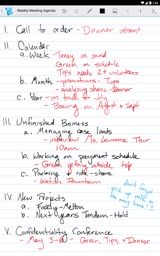 Weekly Meeting Agenda
I. Call to order - Danner absent
II. Calendar
a. Week - Toney on sand
Green on schedule
Tops needs 2+ volunteers
b. Month - promotions - Tops
- analyzing shares - Danner
c. Year - on track for July
- Boeing in August + Sept
III. Unfinished Business
a. Managing case loads
- interview Ms. Lawrence Thur
10am
b. Working on payment schedule
- Green gets outside help
c. Parking + ride-share
- ration downtown
don't forget
IV. New Projects
a. Freddy - Mellon
b. Next Years Tandem - Hold
V. Confidentiality Conference
- May 3-5 - Green, Tops, + Donner